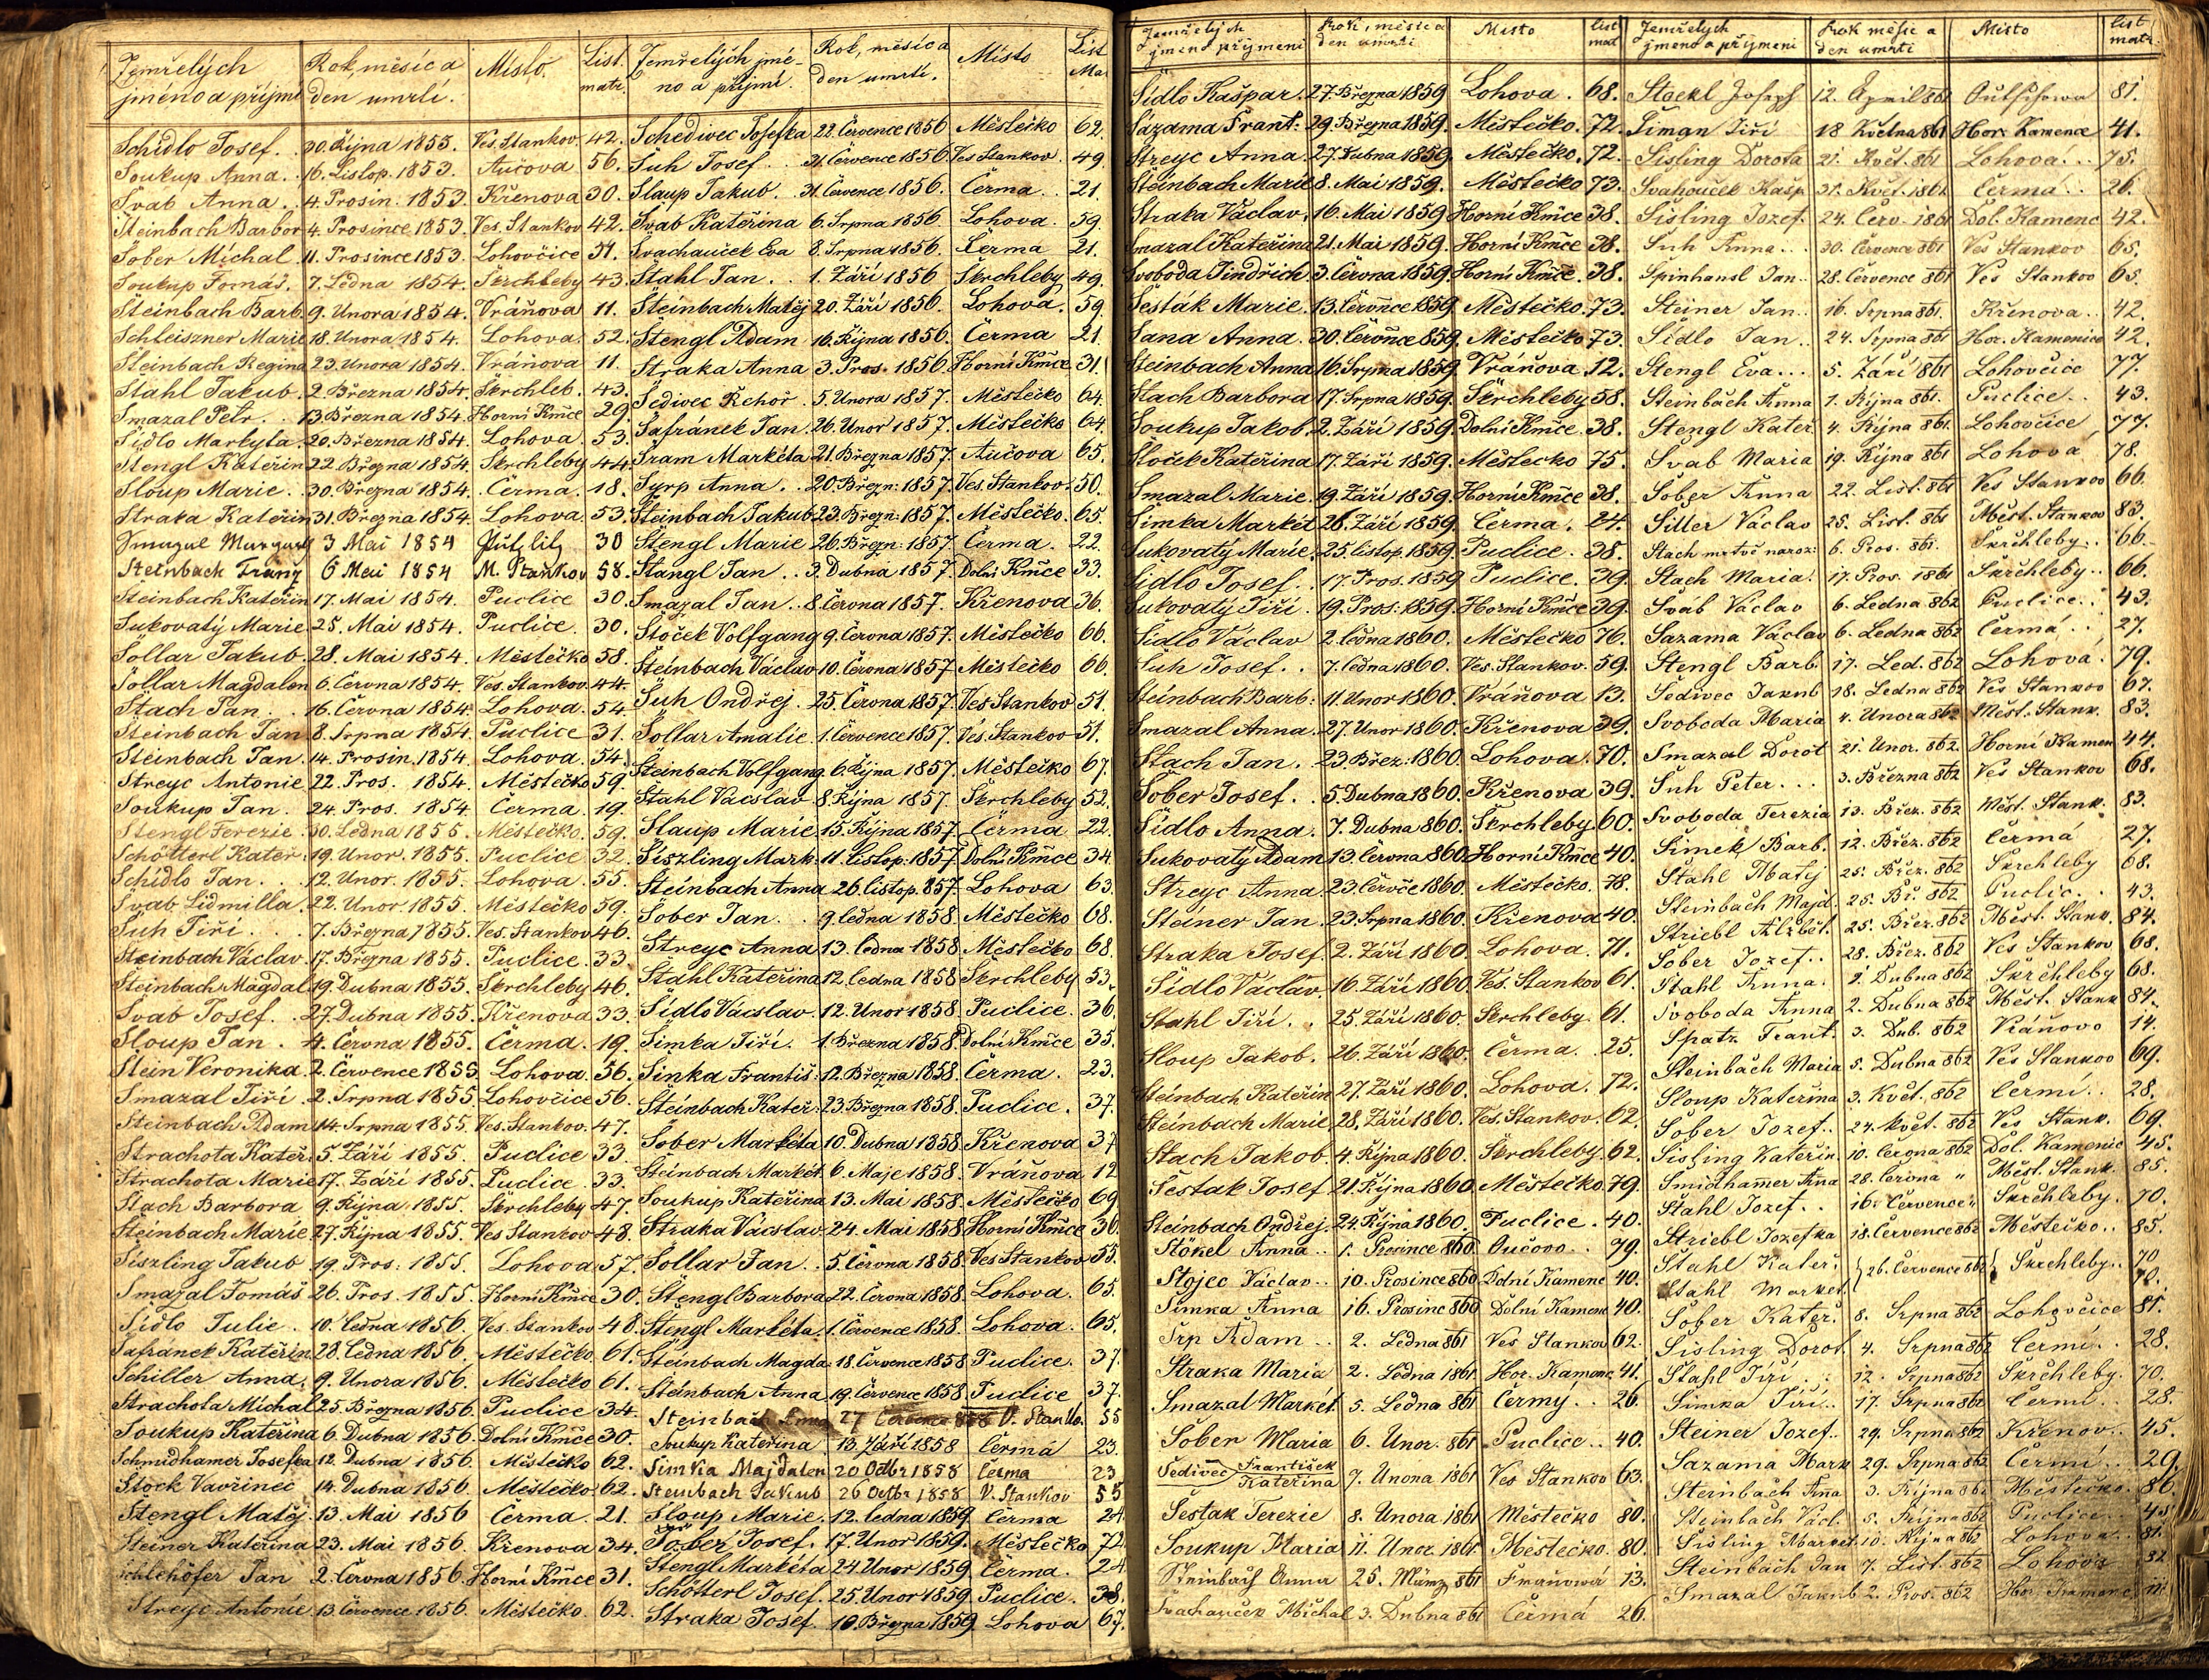 Zemřelých jméno a příjmí Rok, měsíc a den umrlí. Místo. List. matr.
Schidlo Josef. 30. Října 1853. Ves. Stankov. 42.
Soukup Anna. 16. Listop. 1853. Aučova 56.
Švab Anna. 4. Prosin. 1853. Křenova 30.
Steinbach Barbor 4. Prosince 1853. Ves. Stankov 42.
Šober Michal 11. Prosince 1853. Lohovčice 51.
Soukup Tomáš. 7. Ledna 1854. Škrchleby 43.
Šteinbach Barb. 9. Unora 1854. Vráňova 11.
Schleiszner Marie 18. Unora 1854. Lohova. 52.
Šteinbach Regina 23. Unora 1854. Vráňova 11.
Stahl Jakub. 2. Března 1854. Škrchleb. 43.
Smazal Petr. 13. Března 1854. Horní Kmče 29.
Šidlo Markyta. 20. Března 1854. Lohova. 53.
Stengl Kateřin 22. Března 1854. Škrchleby 44.
Sloup Marie. 30. Března 1854. Čerma. 18.
Straka Kateřin 31. Března 1854. Lohova. 53.
3 Mai 1854 30
Steinbach Franz 6 Mai 1854 M. Stankov 58.
Šteinbach Kateřin 17. Mai 1854. Puclice 30.
Sukovatý Marie. 25. Mai 1854. Puclice. 30.
Šollar Jakub. 28. Mai 1854. Městečko 58.
Šollar Magdalen 6. Června 1854. Ves. Stankov. 44.
Štach Jan. 16. Června 1854. Lohova. 54.
Šteinbach Jan 8. Srpna 1854. Puclice 31.
Šteinbach Jan. 14. Prosin. 1854. Lohova. 54.
Streyc Antonie 22. Pros. 1854. Městečko 59.
Soukup Jan 24. Pros. 1854 Čerma. 19.
Stengl Terezie. 30. Ledna 1855. Městečko. 59.
Schötterl Kater. 19. Unor. 1855. Puclice 32.
Schidlo Jan. 12. Unor. 1855. Lohova. 55.
Švab Lidmilla. 22. Unor. 1855. Městečko 59.
Suh Jiří. 7. Března 1855. Ves. Stankov 46.
Steinbach Václav. 17. Března 1855. Puclice. 33.
Steinbach Magdal. 19. Dubna 1855. Škrchleby 46.
Švab Josef. 27. Dubna 1855. Křenova 33.
Sloup Jan. 4. Června 1855. Čerma. 19.
Stein Veronika. 2. Července 1855 Lohova. 56.
Smazal Jiří. 2. Srpna 1855. Lohovčice 56.
Steinbach Adam 14. Srpna 1855. Ves. Stankov. 47.
Strachota Kateř. 5. Září 1855. Puclice 33.
Strachota Marie 17. Září 1855. Puclice. 33.
Stach Barbora 9. Října 1855. Škrchleby 47.
Steinbach Marie. 27. Října 1855. Ves Stankov 48.
Šiszling Jakub 19. Pros: 1855. Lohova 57.
Smazal Tomáš 26. Pros. 1855. Horní Kmče 30.
Šidlo Julie. 10. Ledna 1856. Ves. Stankov 48.
Šafranek Kateřin. 28. Ledna 1856. Městečko. 61.
Schiller Anna. 9. Unora 1856. Městečko 61.
Strachota Michal 25. Března 1856. Puclice 34.
Soukup Kateřina 6. Dubna 1856. Dolní Kmče 30.
Schmidhamer Josefka 12. Dubna 1856. Městečko 62.
Stock Vavřinec 14. Dubna 1856. Městečko. 62.
Stengl Matěj. 13. Mai 1856 Čerma. 21.
Steiner Kateřina 23. Mai 1856. Křenova 34.
Schlehöfer Jan 2. Června 1856. Horní Kmče 31.
Streyc Antonie. 13. Července 1856. Městečko. 62.
Zemřelých jméno a příjmí. Rok, měsíc a den umrlí. Místo List Mat
Schedivec Josefka 22. Července 1856 Městečko 62.
Suh Josef. 21. Července 1856. Ves Stankov. 49.
Slaup Jakub. 31. Července 1856. Čerma. 21.
Švab Kateřina 6. Srpna 1856. Lohova. 59.
Svachauček Eva 8. Srpna 1856. Čerma 21.
Stahl Jan. 1. Září 1856 Škrchleby 49.
Šteinbach Matěj 20. Září 1856. Lohova. 59
Stengl Adam 16. Října 1856. Čerma 21.
Straka Anna 3. Pros. 1856. Horní Kmče 31.
Šedivec Řehoř. 5. Unora 1857. Městečko 64.
Šafránek Jan. 26. Unor 1857. Městečko 64.
Šram Markéta 21. Března 1857. Aučova 65.
Syrp Anna. 20. Březn: 1857. Ves. Stankov. 50.
Steinbach Jakub 23. Březn. 1857. Městečko. 65.
Stengl Marie 26. Březn: 1857. Čerma. 22.
Stangl Jan. 3. Dubna 1857. Dolní Kmče 33.
Smazal Jan. 8. Června 1857. Křenova 36.
Stoček Volfgang 9. Června 1857. Městečko 66.
Šteinbach Václav 10. Června 1857 Městečko 66.
Suh Ondřej. 25. Června 1857. Ves Stankov 51.
Šollar Amalie. 1. Července 1857. Ves. Stankov 51.
Steinbach Volfgang. 6. Října 1857. Městečko 67.
Stahl Vácslav. 8. Října 1857. Škrchleby 52.
Slaup Marie 15. Října 1857. Čerma 22.
Šiszling Mark. 11. Listop: 1857. Dolní Kmče 34.
Šteinbach Anna 26. listop. 857. Lohova 63.
Šober Jan. 9. ledna 1858. Městečko 68.
Streyc Anna 13. ledna 1858. Městečko 68.
Stahl Kateřina 12. ledna 1858 Škrchleby 53.
Šidlo Vácslav. 12. Unor 1858. Puclice. 36.
Šimka Jiří. 1. Března 1858. Dolní Kmče 35.
Šinka Františ: 12. Března 1858. Čerma. 23.
Steinbach Kateř: 23. Března 1858. Puclice. 37.
Šober Markéta 10. Dubna 1858. Křenova 37
Steinbach Markét. 6. Maje 1858. Vráňova 12
Soukup Kateřina 13. Mai 1858. Městečko 69
Straka Vácslav. 24. Mai 1858. Horní Kmče 36.
Šollar Jan. 5. Června 1858. Ves Stankov 55.
Stengl Barbora 22. Června 1858. Lohova. 65.
Štengl Markéta. 1. Července 1858. Lohova. 65.
Šteinbach Magda. 18. Července 1858 Puclice. 37.
Šteinbach Anna. 19. Července 1858. Puclice 37.
Steinbach Anna 27 Července 858 V. Stanko. 55
Soukup Kateřina 13. Září 1858 Čermá 23.
Simka Majdalen 20 Octbr 1858 Čerma 23
Steinbach Jakub 26 Octbr 1858 V. Stankov 55
Sloup Marie. 12. ledna 1859 Čerma 24.
Šober Josef. 17. Unor 1859. Městečko 72.
Stengl Markéta 24. Unor 1859 Čerma. 24
Schötterl Josef. 25. Unor 1859. Puclice. 38.
Straka Josef. 10. Března 1859. Lohova 67.
Zemřelých jmeno příjmeni Rok, měsíc a den umrti Misto list mat
Šídlo Kašpar. 27. Března 1859 Lohova. 68.
Sázama Frant: 29. Března 1859. Městečko. 72.
Streyc Anna 27. Dubna 1859. Městečko. 72.
Steinbach Marie 8. Mai 1859. Městečko 73.
Straka Václav. 16. Mai 1859 Horní Kmče 38.
Smazal Kateřina 21. Mai 1859. Horní Kmče 38.
Svoboda Jindřich. 3. Června 1859. Horní Kmče. 38.
Šesták Marie. 13. Července 1859. Městečko. 73.
Šana Anna. 30. Července 859. Městečko 73.
Steinbach Anna 16. Srpna 1859 Vráňova 12.
Stach Barbora 17. Srpna 1859. Škrchleby 58.
Soukup Jakob. 2. Září 1859. Dolní Kmče. 38.
Stoček Kateřina 17. Září 1859. Městečko 75.
Smazal Marie. 19. Září 1859. Horní Kmče 38.
Šimka Markét 26. Září 1859. Čerma. 24.
Sukovatý Marie. 25. listop. 1859. Puclice. 38.
Šidlo Josef. 17. Pros. 1859 Puclice. 39.
Sukovatý Jiří. 19. Pros: 1859. Horní Kmče 39.
Šidlo Václav 2. ledna 1860. Městečko 76.
Suh Josef. 7. ledna 1860. Ves. Stankov. 59.
Steinbach Barb: 11. Unor 1860. Vráňova 13.
Smazal Anna. 27. Unor 1860. Křenova 39.
Stach Jan. 23. Břez. 1860. Lohova. 70.
Šober Josef. 5. Dubna 1860. Křenova 39.
Šidlo Anna. 7. Dubna 860. Škrchleby. 60.
Sukovatý Adam 13. Června 860. Horní Kmče 40.
Streyc Anna. 23. Červče 1860. Městečko. 78.
Steiner Jan. 23. Srpna 1860. Křenova 40.
Straka Josef. 2. Září 1860. Lohova. 71.
Šidlo Václav. 16. Září 1860. Ves. Stankov 61.
Stahl Jiří. 25. Září 1860. Škrchleby. 61.
Sloup Jakob. 26. Září 1860. Čerma. 25.
Steinbach Kateřin 27. Září 1860. Lohova. 72.
Steinbach Marie 28. Září 1860. Ves. Stankov. 62.
Stach Jakob. 4. Října 1860. Škrchleby. 62.
Šestak Josef 21. Října 1860. Městečko. 79.
Steinbach Ondřej. 24. Října 1860. Puclice. 40.
Stökel Anna.. 1. Prosince 860 Oučovo.. 79.
Stojec Václav.. 10. Prosince 860 Dolní Kamenc 40.
Šimka Anna 16. Prosinc 860 Dolní Kamenc 40.
Srp Adam.. 2. Ledna 861 Ves Stankov 62.
Straka Maria 2. Ledna 1861 Hor. Kamenc 41.
Smazal Markét 5. Ledna 861 Čermý.. 26.
Šober Maria 6. Unor. 861 Puclice.. 40.
Šedivec František Kateřina 7. Unora 1861 Ves Stankov 63.
Šestak Terezie 8. Unora 1861 Městečko 80.
Soukup Maria 11. Unor. 1861 Městečko. 80.
Steinbach Anna 25. März 861 13.
Svachauček Michal 3. Dubna 861 Čermá 26.
Zemřelých jmeno a přijmeni Rok měsic a den umrti Misto list matr.
Stoekl Joseph 12. April 861 81.
Šiman Jiří 18 Května 861 Hor. Kamenc 41.
Šisling Dorota 21. Květ. 861 Lohová... 75.
Svahouček Kašp. 31. Květ. 1861 Čermá.. 26.
Šisling Jozef 24. Červ. 1861 Dol. Kamenc 42.
Suh Anna... 30. Července 861 Ves Stankov 65.
Spinhansl Jan.. 28. Července 861 Ves Stankov 65.
Steiner Jan.. 16. Srpna 861. Křenova.. 42.
Šídlo Jan.. 24. Srpna 861 Hor. Kamenice 42.
Stengl Eva... 5. Září 861 Lohovčice 77.
Steinbach Anna 1. Října 861. Puclice.. 43.
Stengl Kateř. 4. Října 861. Lohovčice 77.
Svab Maria 19. Října 861 Lohova 78.
Šober Anna 22. List. 861 Ves Stankov 66.
Siller Václav 25. List. 861 Měst. Stankov 83.
Stach mrtvě naroz: 6. Pros. 861. Skrchleby.. 66.
Stach Maria. 17. Pros. 1861 Skrchleby.. 66.
Sváb Václav 6. Ledna 862 Puclice.. 43.
Sazama Václav 6. Ledna 862 Čermá.. 27.
Stengl Barb. 17. Led. 862 Lohova. 79.
Šedivec Jakub 18. Ledna 862 Ves Stankov 67.
Svoboda Maria 4. Unora 862 Měst. Stank. 83.
Smazal Dorot 21. Unor. 862. Horní Kamen 44.
Šuh Peter... 3. Března 862 Ves Stankov 68.
Svoboda Terezia 13. Břez. 862 Měst. Stank. 83.
Šimek Barb. 12. Břez. 862 Čermá 27.
Stahl Matěj 25. Břez. 862 Skrchleby 68.
Steinbach Majd. 25. Bř. 862 Puclic.. 43.
Striebl Alžbět. 25. Břez. 862 Měst. Stank. 84.
Šober Jozef.. 28. Břez. 862 Ves Stankov 68.
Stahl Anna. 2. Dubna 862 Skrchleby 68.
Svoboda Anna 2. Dubna 862 Měst. Stank 84.
Spatz Frant. 3. Dub. 862 Vráňovo 14.
Steinbach Maria 5. Dubna 862 Ves Stankov 69.
Sloup Kateřina 3. Květ. 862 Čermí.. 28.
Šober Jozef.. 24. květ. 862 Ves Stank. 69.
Šisling Kateřin. 10. Června 862 Dol. Kamenic 45.
Smidhamer Ana 28. Června " Měst. Stank. 85.
Stahl Jozef.. 16. Července " Skrchleby. 70.
Striebl Jozefka 18. Července 862 Městečko.. 85.
Stahl Kateř. 26. Července 862 Skrchleby.. 70
Stahl Market. 70.
Šober Kateř. 8. Srpna 862 Lohovčice 81.
Šisling Dorot. 4. Srpna 862 Čermí.. 28.
Stahl Jiří.. 12. Srpna 862 Skrchleby. 70.
Šimka Jiří.. 17. Srpna 862 Čermí.. 28.
Steiner Jozef.. 29. Srpna 862 Křenov.. 45.
Sazama Mark 29. Srpna 862 Čermí.. 29.
Steinbach Ana 3. Října 862 Městečko. 86.
Steinbach Václ. 5. Října 862 Puclice.. 45
Šisling Market. 10. Října 862 Lohova.. 81.
Steinbach Jan 7. List. 862 Lohova 82
Smazal Jakub 2. Pros. 862 Hor. Kamenc